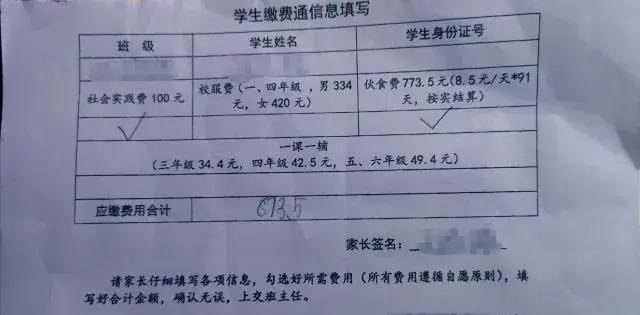 学生缴费通信息填写
班 级 学生姓名 学生身份证号
社会实践费100元 校服费(一、四年级 ,男334 伙食费773.5元(8.5元/天*91
元,女420元) 天,按实结算)
✓ ✓
一课一辅
(三年级34.4元,四年级42.5元,五、六年级49.4元)
应缴费用合计 873.5
家长签名:
请家长仔细填写各项信息,勾选好所需费用(所有费用遵循自愿原则),填
写好合计金额,确认无误,上交班主任。